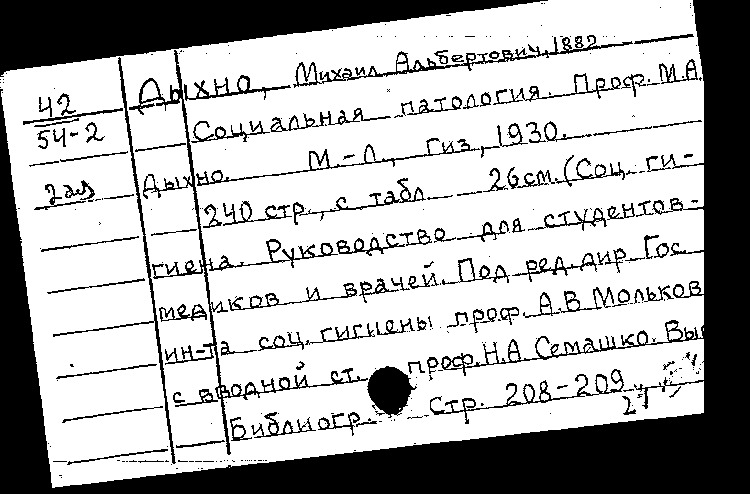 Дыхно, Михаил Альбертович, 1882
42
54-2
Социальная патология. Проф. М.А.
Дыхно. М.-Л., Гиз, 1930.
240 стр., с табл 26см. (Соц. ги-
гиена. Руководство для студентов-
медиков и врачей. Под ред. дир. Гос
ин-та соц. гигиены проф. А.В Мольков
с вводной ст. проф. Н.А. Семашко. Вып
Библиогр. Стр. 208-209